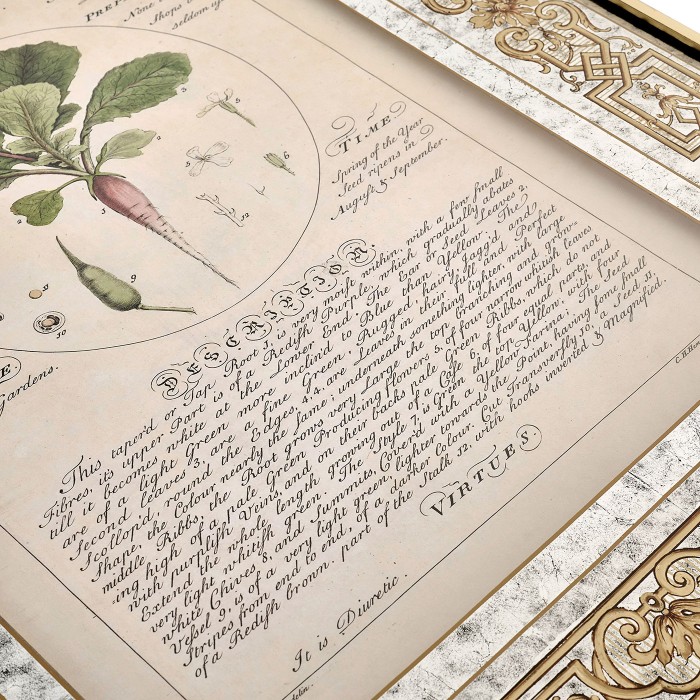 PREP
None
Shops
seldom up
TIME
Spring of the Year
Seed ripens in
August & September.
Gardens.
DESCRIPTION.
This taper'd or Tap Root 1, is very moist within, with a few small
Fibres, it's upper Part is of a Redish Purple, which gradually abates
till it becomes white at the Lower End. The Ear or Seed Leaves 2,
are of a light Green more inclin'd to Blue than Yellow. The
Second leaves 3, are a fine Green, Rugged, hairy, Jagg'd and
Scollop'd, round the Edges, 4.4. are Leaves in their full and Perfect
Shape, the Colour nearly the same; underneath something lighter, with large
middle Ribbs, the Root grows very Large the top branching and grow-
-ing high of a pale Green Producing flowers 5, of four narrow whitish leaves
with purplish Veins, and on their backs pale Green Ribbs, which do not
Extend the whole length growing out of a Calyx 6, of four equal parts, and
very light whitish Green. The Style 7, is Green the top Yellow, with four
white Chives 8, and Summits, Cover'd with a Yellow Farina; The Seed
Vessel 9, is of a very light green, lighter towards the Point, having some small
Stripes from end to end, of a darker Colour. Cut Transversly 10, a Seed 11,
of a Redish brown, part of the Stalk 12, with hooks inverted & Magnified.
VIRTUES.
It is Diuretic.
delin.